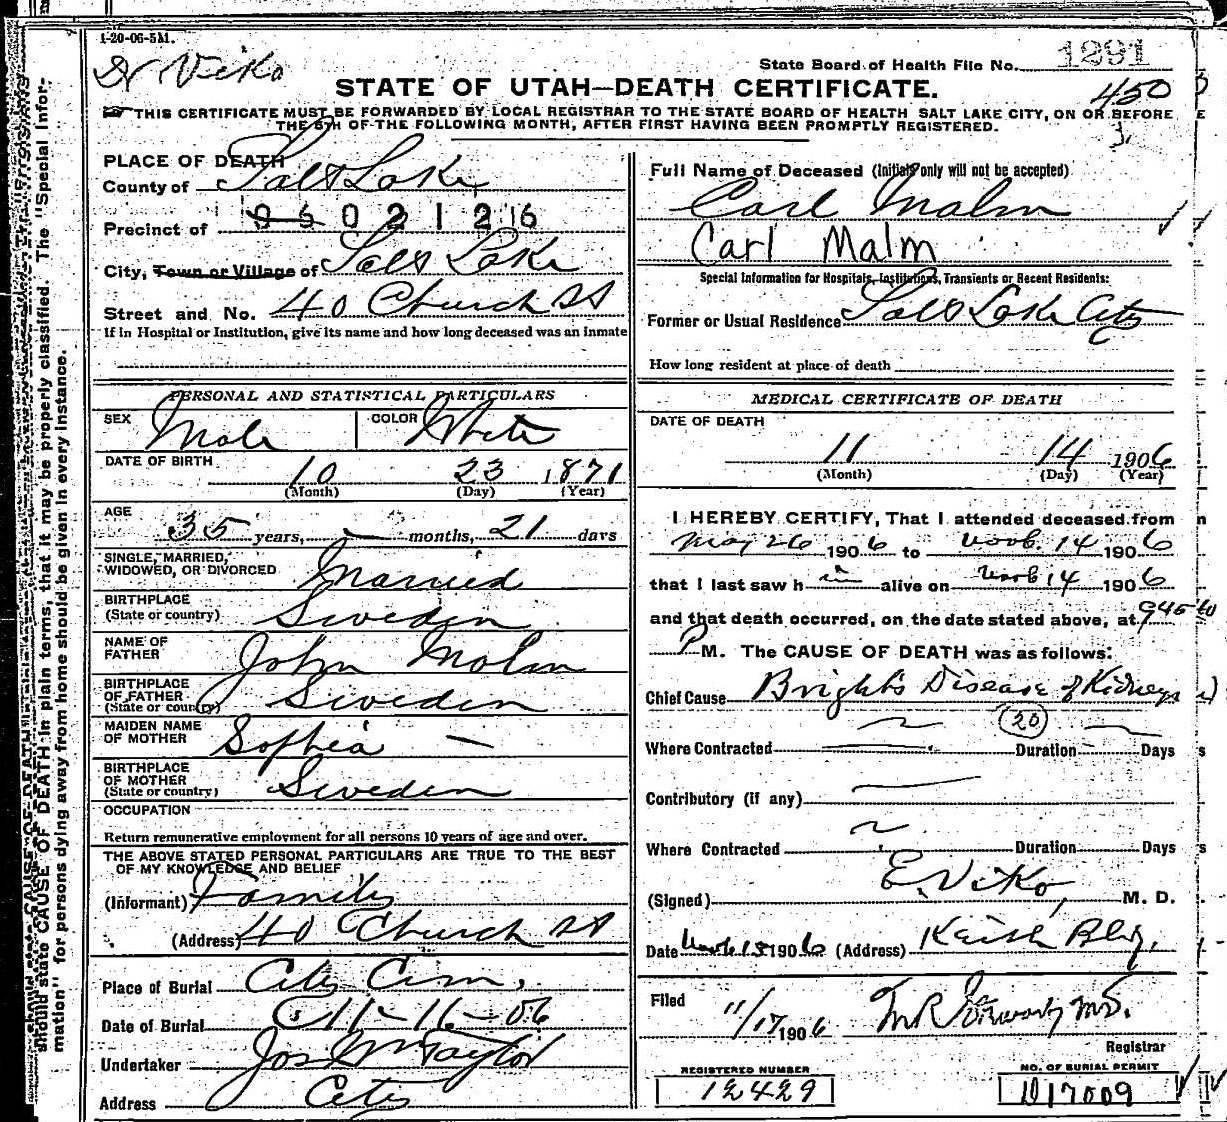 1-20-06-5M.
Dr Viko
State Board of Health File No. 1291
STATE OF UTAH—DEATH CERTIFICATE.
450
THIS CERTIFICATE MUST BE FORWARDED BY LOCAL REGISTRAR TO THE STATE BOARD OF HEALTH SALT LAKE CITY, ON OR BEFORE
THE 5TH OF THE FOLLOWING MONTH, AFTER FIRST HAVING BEEN PROMPTLY REGISTERED.
PLACE OF DEATH
County of Salt Lake
Precinct of
City, Town or Village of Salt Lake
Street and No. 40 Church St
If in Hospital or Institution, give its name and how long deceased was an inmate
Full Name of Deceased (Initials only will not be accepted)
Carl Malm
Carl Malm
Special Information for Hospitals, Institutions, Transients or Recent Residents:
Former or Usual Residence Salt Lake City
How long resident at place of death
PERSONAL AND STATISTICAL PARTICULARS
SEX Male COLOR White
DATE OF BIRTH 10 23 1871
(Month) (Day) (Year)
AGE
35 years, — months, 21 days
SINGLE, MARRIED,
WIDOWED, OR DIVORCED Married
BIRTHPLACE
(State or country) Sweden
NAME OF
FATHER John Malm
BIRTHPLACE
OF FATHER
(State or country) Sweden
MAIDEN NAME
OF MOTHER Sophia —
BIRTHPLACE
OF MOTHER
(State or country) Sweden
OCCUPATION
Return remunerative employment for all persons 10 years of age and over.
THE ABOVE STATED PERSONAL PARTICULARS ARE TRUE TO THE BEST
OF MY KNOWLEDGE AND BELIEF
(Informant) Family
(Address) 40 Church St
Place of Burial City Cem,
Date of Burial 11-16-06
Undertaker Jos Wm Taylor
Address City
MEDICAL CERTIFICATE OF DEATH
DATE OF DEATH
11 14 1906
(Month) (Day) (Year)
I HEREBY CERTIFY, That I attended deceased from
May 26 1906 to Nov. 14 1906
that I last saw him alive on Nov 14 1906
and that death occurred, on the date stated above, at 945
P M. The CAUSE OF DEATH was as follows:
Chief Cause Bright's Disease of Kidneys
(20)
Where Contracted Duration Days
Contributory (if any)
Where Contracted Duration Days
(Signed) E. Viko, M. D.
Date Nov 15 1906 (Address) Keith Blg.
Filed 11/17 1906
Registrar
REGISTERED NUMBER
12429
NO. OF BURIAL PERMIT
D17009
should state CAUSE OF DEATH in plain terms, that it may be properly classified. The "Special Infor-
mation" for persons dying away from home should be given in every instance.